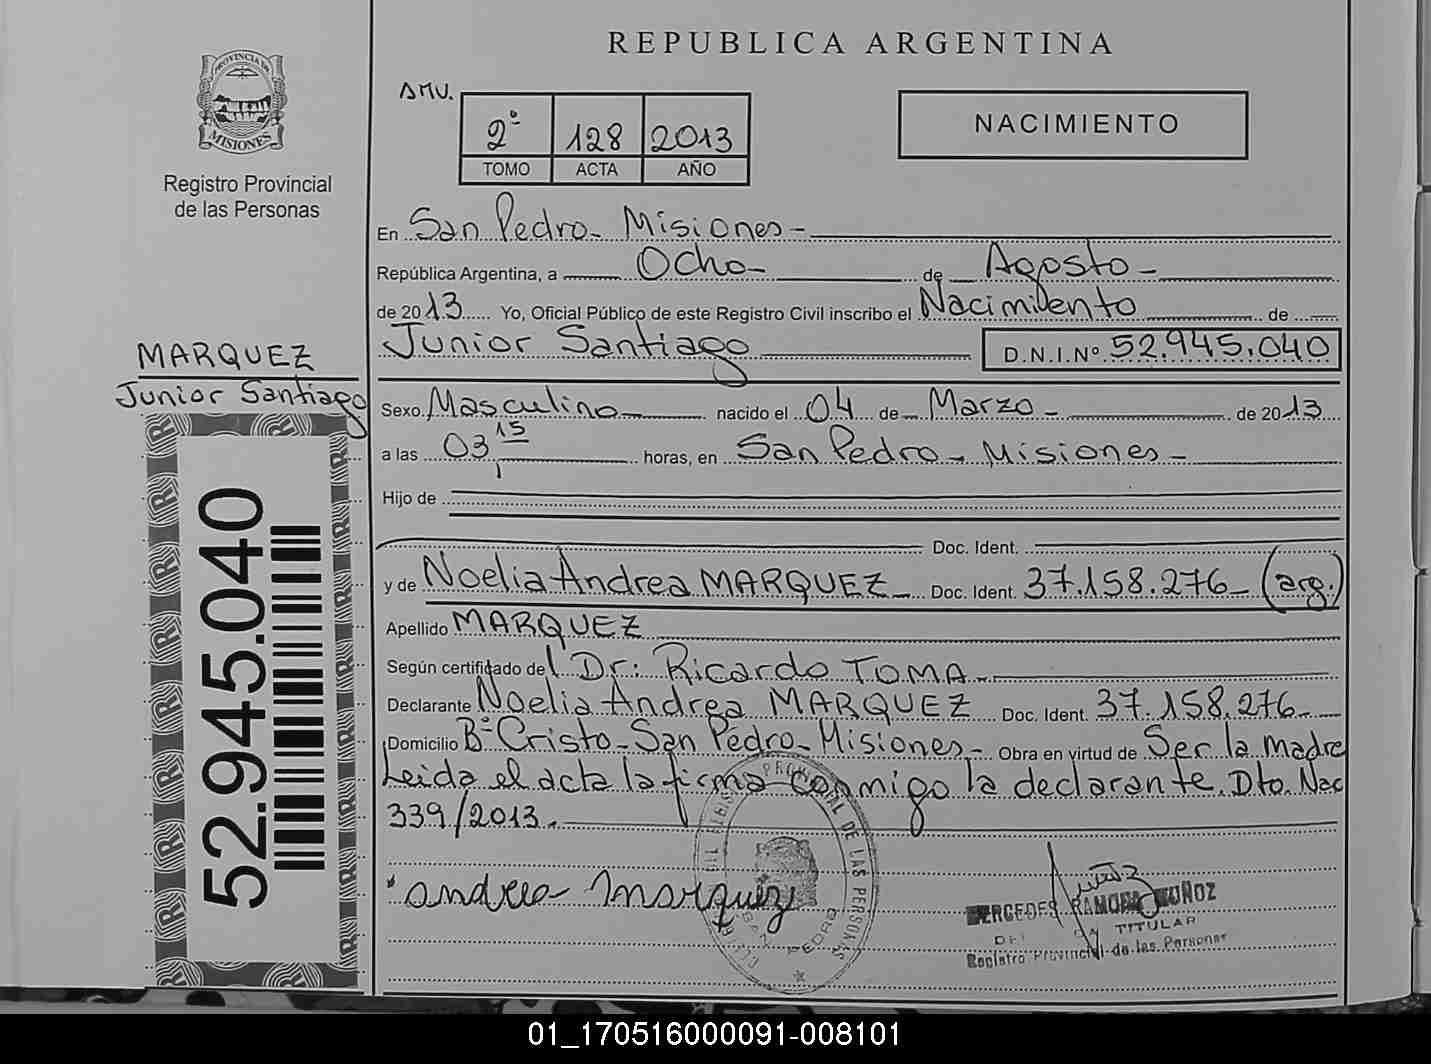 REPUBLICA ARGENTINA
PROVINCIA DE
MISIONES
Registro Provincial
de las Personas
AMU.
2º 128 2013
TOMO ACTA AÑO
NACIMIENTO
En San Pedro - Misiones -
República Argentina, a Ocho - de Agosto -
de 2013 Yo, Oficial Público de este Registro Civil inscribo el Nacimiento de
Junior Santiago D.N.I.Nº 52.945.040
MARQUEZ
Junior Santiago
Sexo Masculino nacido el 04 de Marzo - de 2013
a las 03,15 horas, en San Pedro - Misiones -
Hijo de
Doc. Ident.
y de Noelia Andrea MARQUEZ - Doc. Ident. 37.158.276 - (arg.)
Apellido MARQUEZ
Según certificado del Dr: Ricardo TOMA -
Declarante Noelia Andrea MARQUEZ Doc. Ident. 37.158.276 -
Domicilio Bº Cristo - San Pedro - Misiones - Obra en virtud de Ser la madre
Leida el acta la firma conmigo la declarante. Dto. Nac
339/2013 -
52.945.040
andrea Marquez
PROVINCIAL DE LAS PERSONAS
SAN PEDRO
MERCEDES RAMONA MUÑOZ
TITULAR
Registro Provincial de las Personas
01_170516000091-008101